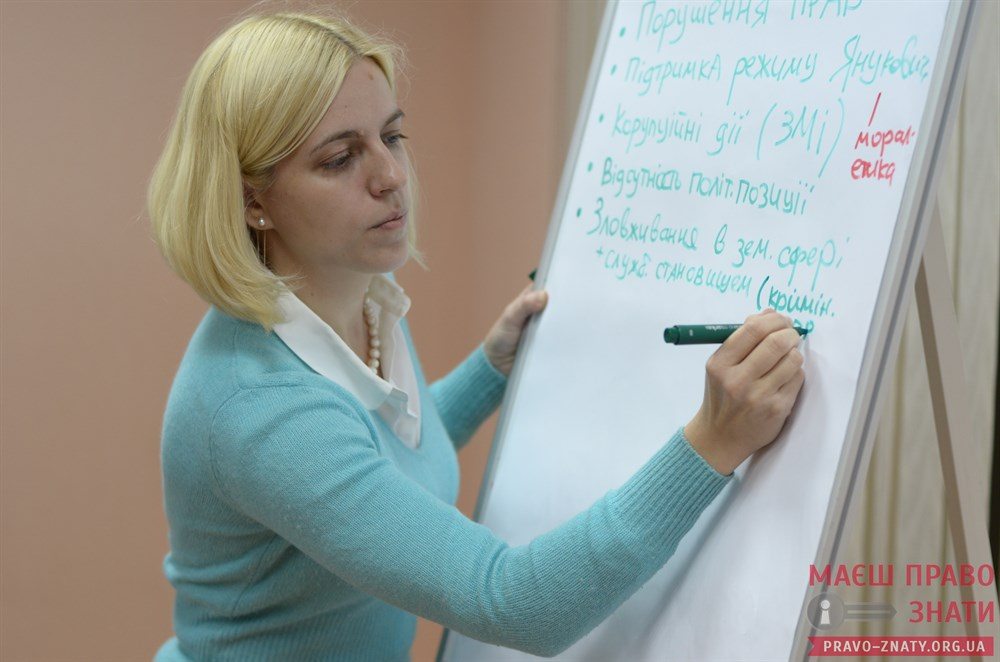 • Порушення ПРАВ
• Підтримка режиму Янукович
• Корупційні дії (ЗМІ)
/
морал-
етика
• Відсутність політ. позиції
• Зловживання в зем. сфері
+ служб. становищем (кримін.
МАЄШ ПРАВО
ЗНАТИ
PRAVO-ZNATY.ORG.UA